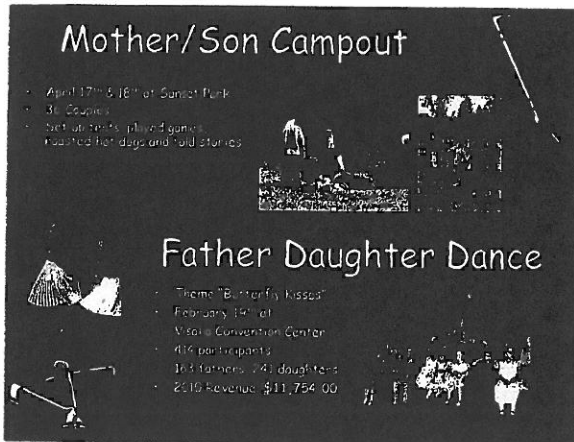 Mother/Son Campout
- April 17th & 18th at Sunset Park
- Couples
- Set up tents, played games,
roasted hot dogs and told stories
Father Daughter Dance
- Theme "Butterfly Kisses"
- February 19th at
Visalia Convention Center
- participants
163 fathers daughters
- 2010 Revenue: $11,754.00